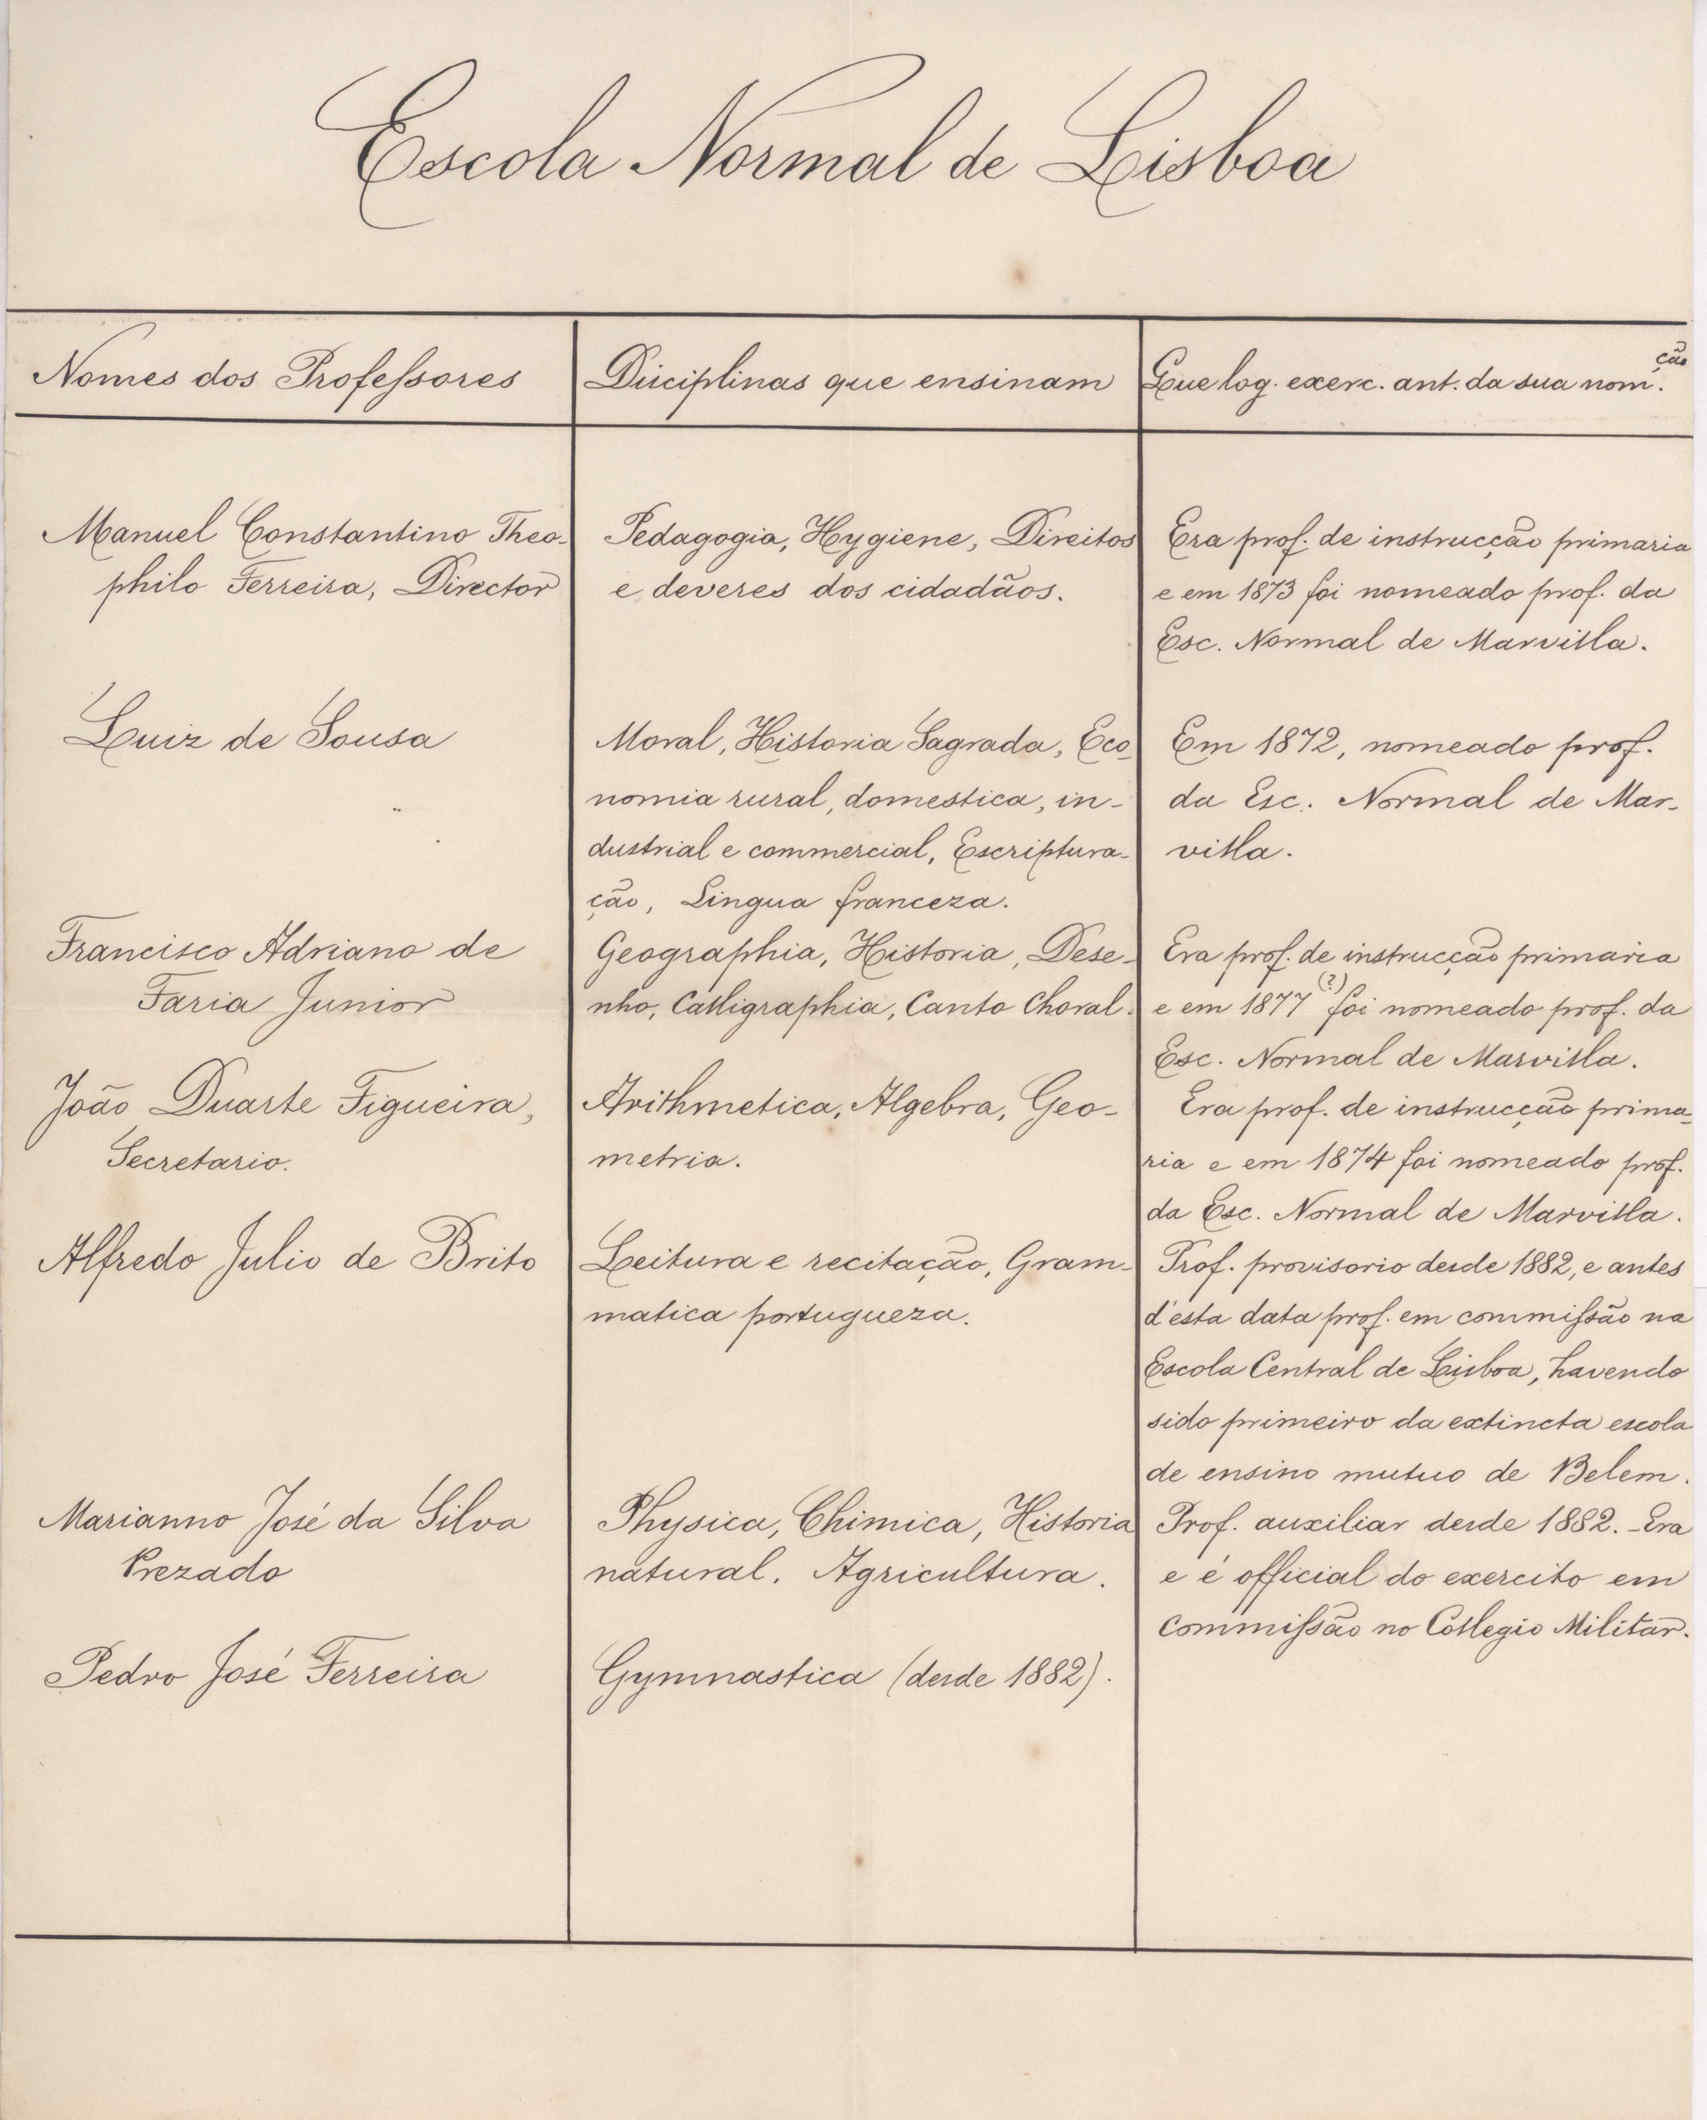 Escola Normal de Lisboa
Nomes dos Professores
Disciplinas que ensinam
Que log. exerc. ant. da sua nom.ção
Manuel Constantino Theo-
philo Ferreira, Director
Pedagogia, Hygiene, Direitos
e deveres dos cidadãos.
Era prof. de instrucção primaria
e em 1873 foi nomeado prof. da
Esc. Normal de Marvilla.
Luiz de Sousa
Moral, Historia Sagrada, Eco-
nomia rural, domestica, in-
dustrial e commercial, Escriptura-
ção, Lingua franceza.
Em 1872, nomeado prof.
da Esc. Normal de Mar-
villa.
Francisco Adriano de
Faria Junior
Geographia, Historia, Dese-
nho, Calligraphia, Canto Choral.
Era prof. de instrucção primaria
e em 1877 (?) foi nomeado prof. da
Esc. Normal de Marvilla.
João Duarte Figueira,
Secretario.
Arithmetica, Algebra, Geo-
metria.
Era prof. de instrucção prima-
ria e em 1874 foi nomeado prof.
da Esc. Normal de Marvilla.
Alfredo Julio de Brito
Leitura e recitação, Gram-
matica portugueza.
Prof. provisorio desde 1882, e antes
d'esta data prof. em commissão na
Escola Central de Lisboa, havendo
sido primeiro da extincta escola
de ensino mutuo de Belem.
Marianno José da Silva
Prezado
Physica, Chimica, Historia
natural. Agricultura.
Prof. auxiliar desde 1882. - Era
e é official do exercito em
commissão no Collegio Militar.
Pedro José Ferreira
Gymnastica (desde 1882).